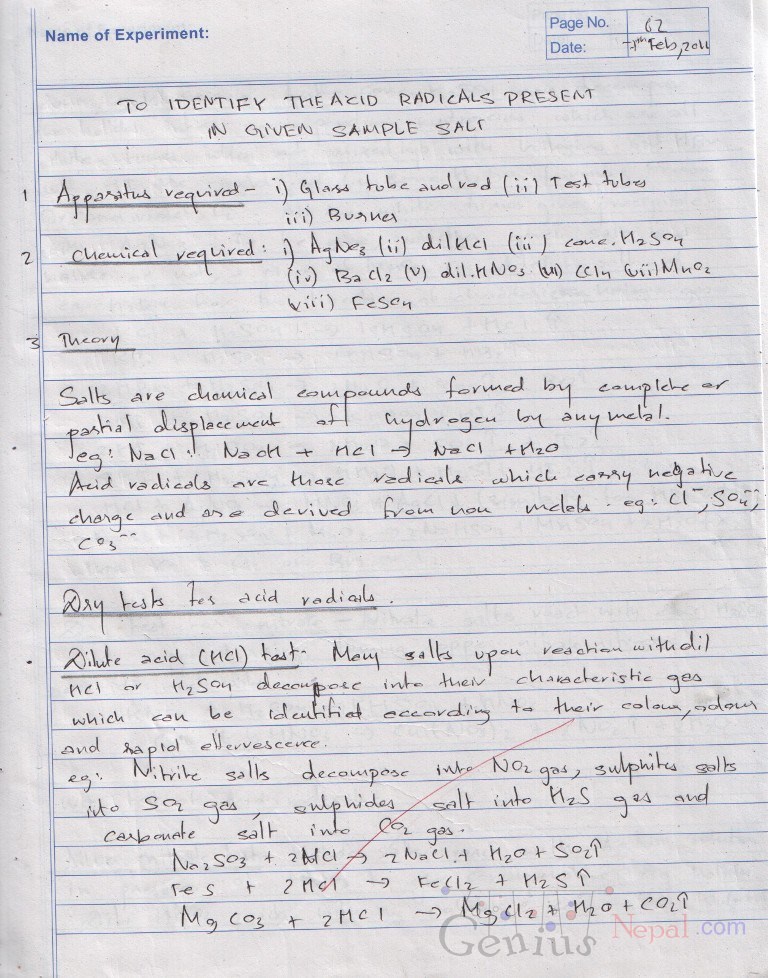 Name of Experiment:
Page No. 62
Date: Feb, 2011
TO IDENTIFY THE ACID RADICALS PRESENT
IN GIVEN SAMPLE SALT
1 Apparatus required - i) Glass tube and rod (ii) Test tubes
iii) Burner
2 Chemical required: i) AgNo3 (ii) dil HCl (iii) conc. H2SO4
(iv) BaCl2 (v) dil. HNO3 (vi) CCl4 (vii) MnO2
viii) FeSO4
3 Theory
Salts are chemical compounds formed by complete or
partial displacement of hydrogen by any metal.
eg: NaCl: NaOH + HCl → NaCl + H2O
Acid radicals are those radicals which carry negative
charge and are derived from non metals. eg: Cl⁻, SO4⁻⁻,
CO3⁻⁻
Dry tests for acid radicals.
• Dilute acid (HCl) test- Many salts upon reaction with dil
HCl or H2SO4 decompose into their characteristic gas
which can be identified according to their colour, odour
and rapid effervescence.
eg: Nitrite salts decompose into NO2 gas, sulphites salts
into SO2 gas, sulphides salt into H2S gas and
carbonate salt into CO2 gas.
Na2SO3 + 2HCl → 2NaCl + H2O + SO2↑
FeS + 2HCl → FeCl2 + H2S↑
MgCO3 + 2HCl → MgCl2 + H2O + CO2↑
Genius Nepal.com